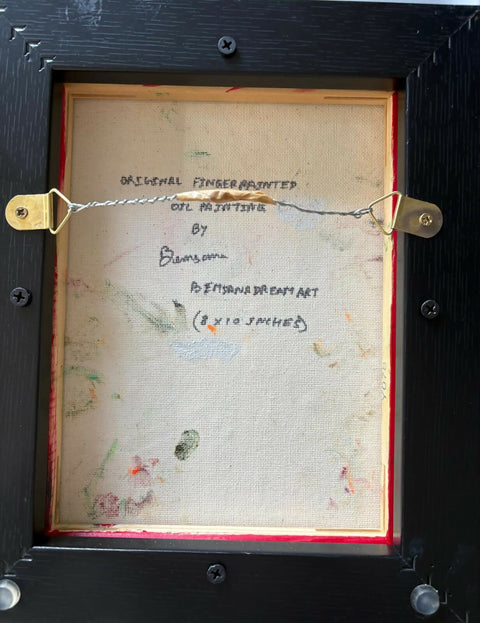 ORIGINAL FINGERPAINTED
OIL PAINTING
BY
Bemsana
BEMSANADREAMART
(8 X 10 INCHES)